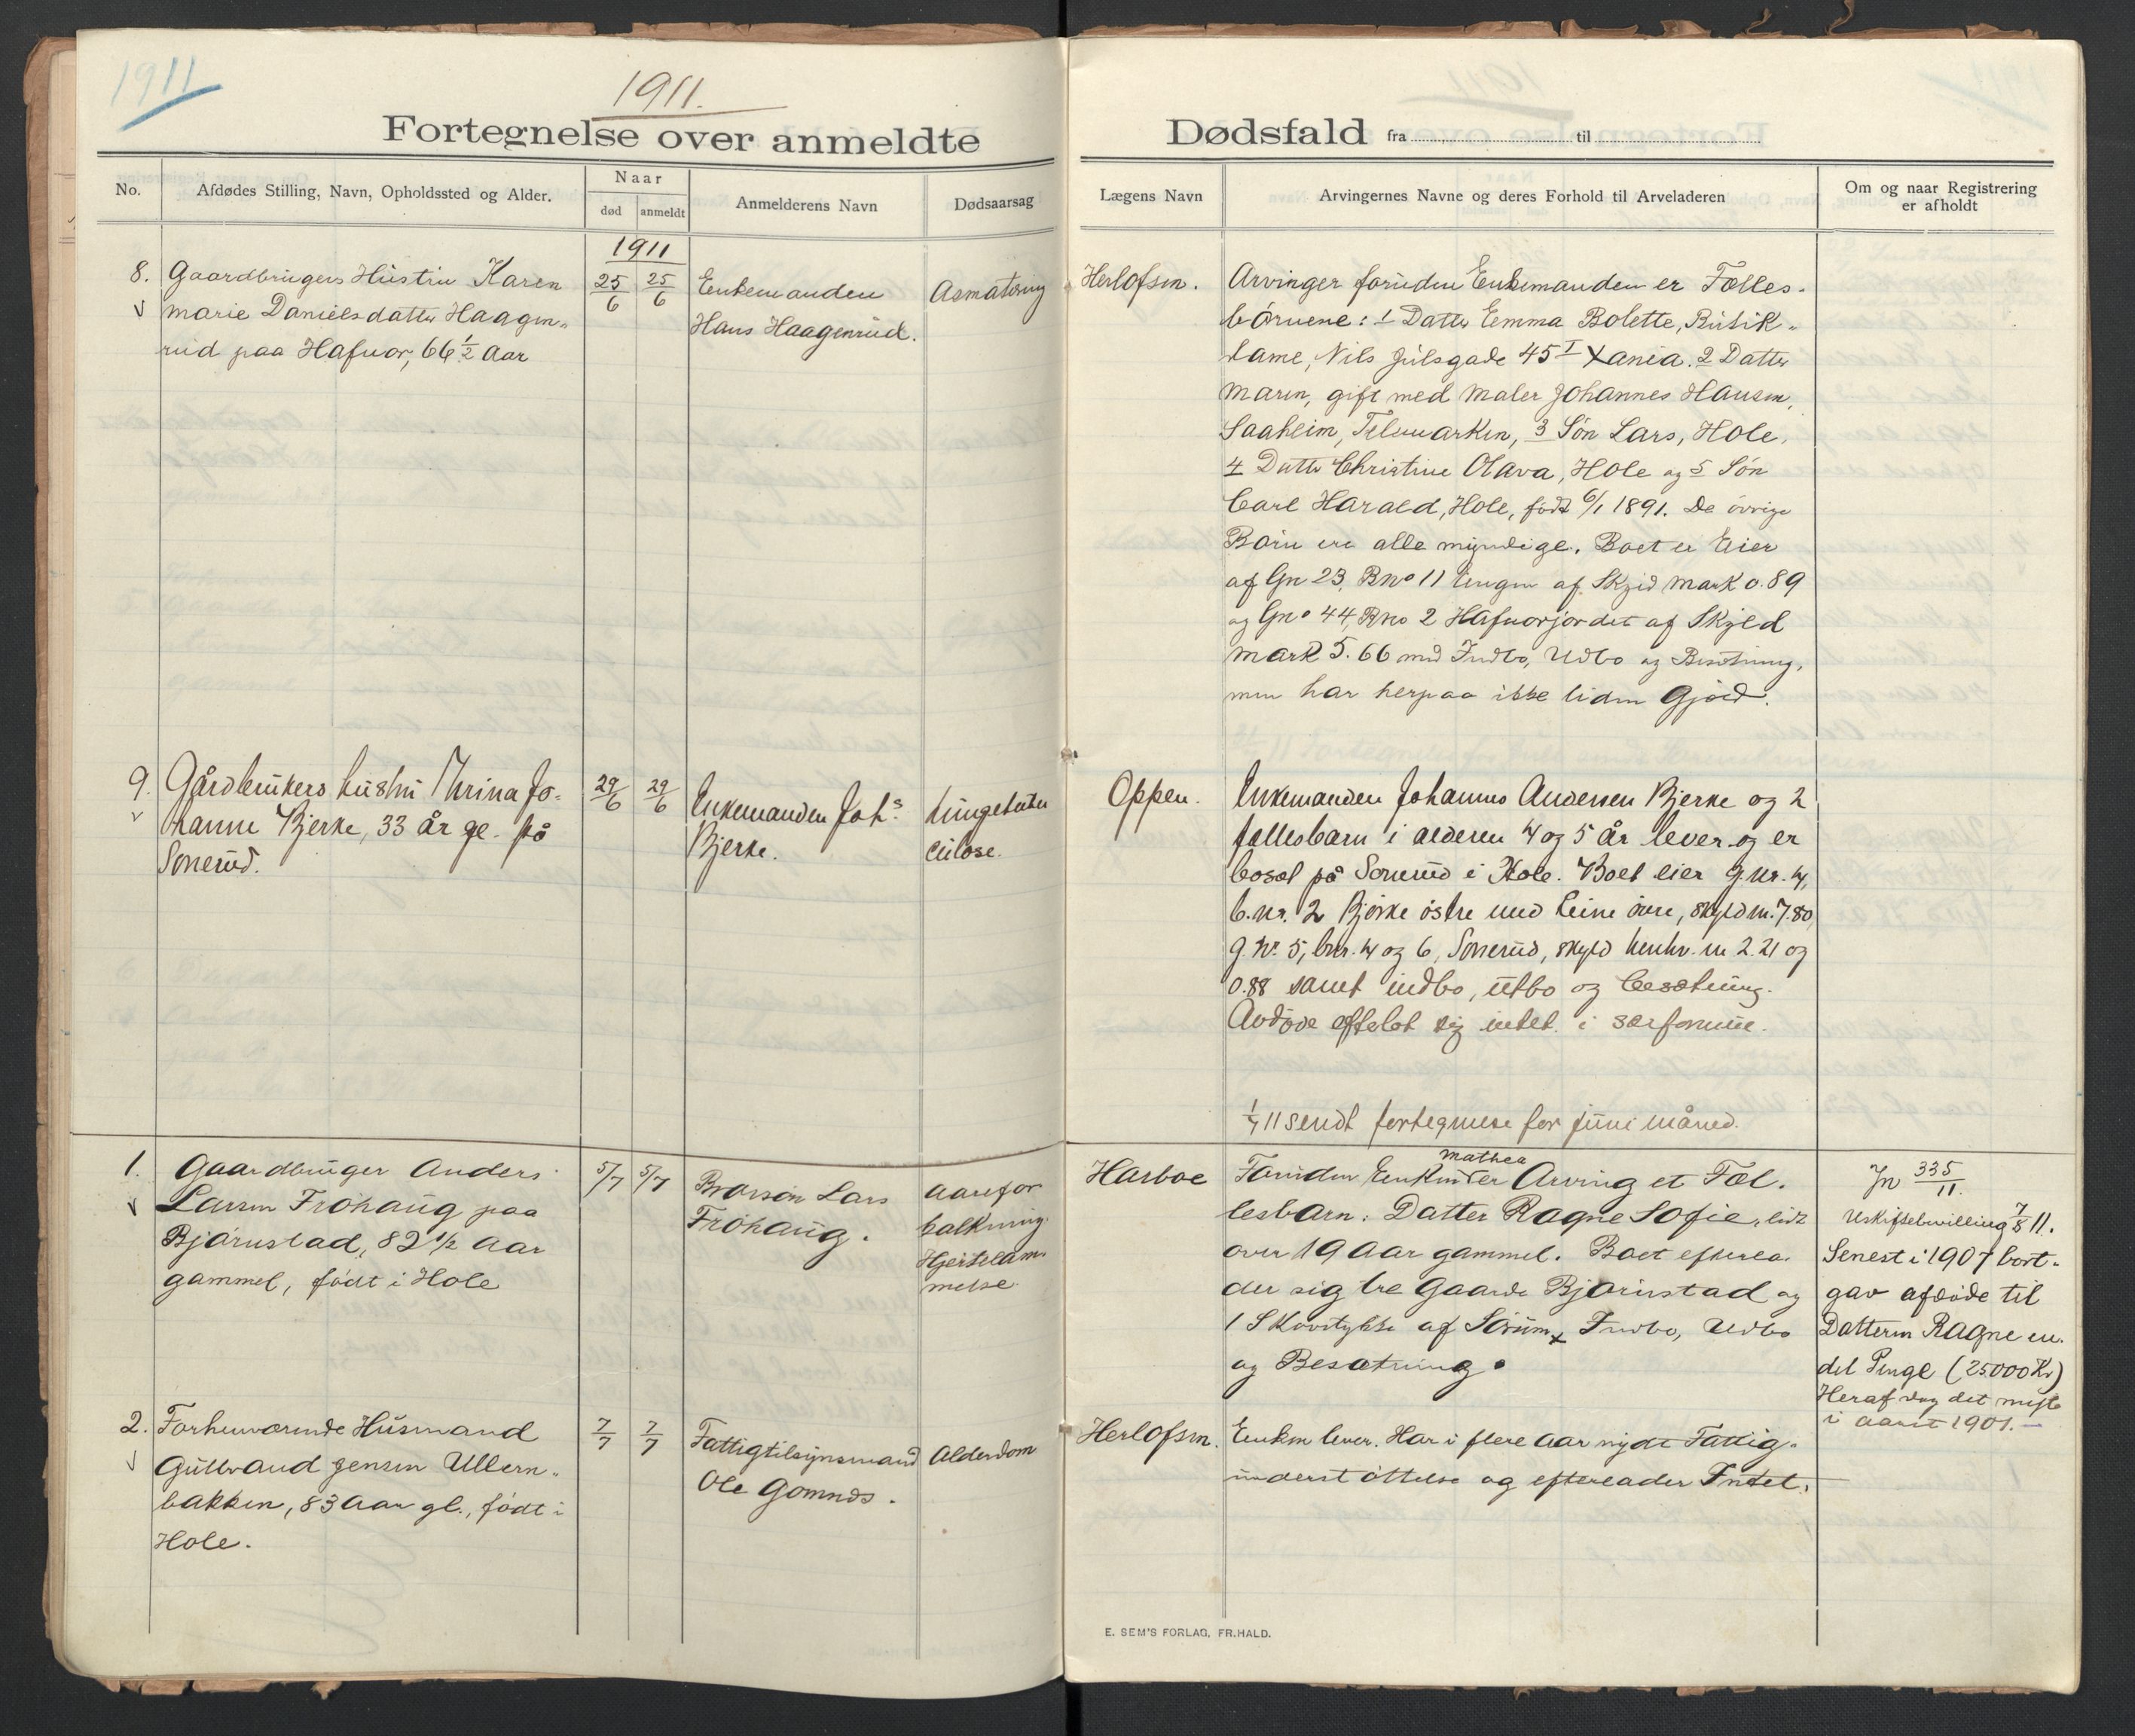 1911
1911.
Fortegnelse over anmeldte
No.
Afdødes Stilling, Navn, Opholdssted og Alder.
Naar
død
anmeldt
Anmelderens Navn
Dødsaarsag
1911
8.
Gaardbrugers Hustru Karen
Marie Danielsdatter Haagen-
rud paa Hafnor, 66 1/2 Aar
25/6
25/6
Enkemanden
Hans Haagenrud.
9.
Gårdbrukers hustru Thrina Jo-
hanne Bjerke, 33 år gl. på
Sonerud.
29/6
29/6
Enkemanden Johs
Bjerke.
Lungetuber
culose.
1.
Gaardbruger Anders
Larsen Frøhaug paa
Bjørnstad, 82 1/2 Aar
gammel, født i Hole
5/7
5/7
Brorsøn Lars
Frøhaug.
Aarefor
kalkning
Hjertelam-
melse.
2.
Forhenværende Husmand
Gulbrand Jensen Ullern-
bakken, 83 Aar gl., født i
Hole.
7/7
7/7
Fattigtilsynsmand
Ole Gomnæs.
Alderdom
Dødsfald fra til
Lægens Navn
Arvingernes Navne og deres Forhold til Arveladeren
Om og naar Registrering
er afholdt
Herlofsen.
Arvinger foruden Enkemanden er Fælles-
børnene: 1 Datter Emma Bolette, Butik-
dame, Nils Julsgade 45 I Xania. 2 Datter
Maren, gift med Maler Johannes Hansen,
Saaheim, Telemarken, 3 Søn Lars, Hole,
4 Datter Christine Olava, Hole og 5 Søn
Carl Harald, Hole, født 6/1 1891. De øvrige
Børn ere alle myndige. Boet er Eier
af Gn 23, Bno 11 Engen af Skyld Mark 0.89
og Gno 44, Bno 2 Hafnorjordet af Skyld
Mark 5.66 med Indbo, Udbo og Besætning,
men har herpaa ikke liden Gjæld.
Oppen.
Enkemanden Johannes Andersen Bjerke og 2
fællesbarn i alderen 4 og 5 år lever og er
bosat på Sonerud i Hole. Boet eier g.nr. 4,
b.nr. 2 Bjørke østre med Leine øvre, skyld m. 7.80,
g.nr. 5, bnr. 4 og 6, Sonerud, skyld henhv. m 2.21 og
0.88 samt indbo, utbo og besætning.
Avdøde efterlot sig intet i særformue.
1/7 11 sendt fortegnelse for juni måned.
Harboe
Mathea
Foruden Enken er Arving et Fæl-
lesbarn: Datter Ragne Sofie, lidt
over 19 Aar gammel. Boet efterla-
der sig tre Gaarde Bjørnstad og
1 Skovstykke af Sørum x Indbo, Udbo
og Besætning.
Jn 335/11.
Uskiftebevilling 7/8 11.
Senest i 1907 bort-
gav afdøde til
Datteren Ragne en
del Penge (25000 Kr)
Heraf dog det meste
i Aaret 1901.
Herlofsen.
Enken lever. Har i flere Aar nydt Fattig-
understøttelse og efterlader Intet.
E. SEM'S FORLAG, FR.HALD.